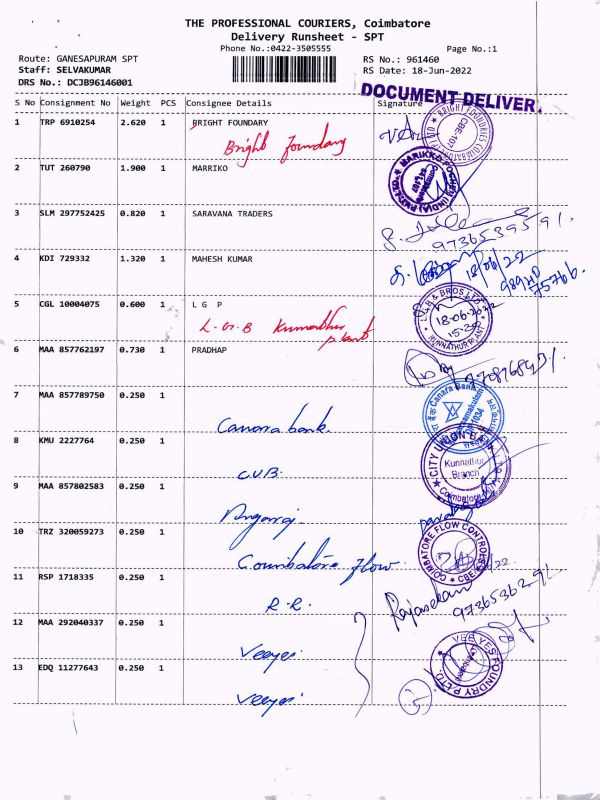 THE PROFESSIONAL COURIERS, Coimbatore
Delivery Runsheet - SPT
Phone No.:0422-3505555
Page No.:1
Route: GANESAPURAM SPT
RS No.: 961460
Staff: SELVAKUMAR
RS Date: 18-Jun-2022
DRS No.: DCJB96146001
DOCUMENT DELIVER.
S No Consignment No Weight PCS Consignee Details Signature
1 TRP 6910254 2.620 1 BRIGHT FOUNDARY
Bright Foundary
2 TUT 260790 1.900 1 MARRIKO
3 SLM 297752425 0.820 1 SARAVANA TRADERS
9736539591.
4 KDI 729332 1.320 1 MAHESH KUMAR
18/06/22
5 CGL 10004075 0.600 1 L G P
L.G.B Kunnathur plant
18-06-2022
15-30
KUNNATHUR PLANT
6 MAA 857762197 0.730 1 PRADHAP
7 MAA 857789750 0.250 1
Canara bank.
Canara Bank
8 KMU 2227764 0.250 1
C.U.B.
CITY UNION BANK
Kunnathur
Branch
Coimbatore
9 MAA 857802583 0.250 1
10 TRZ 320059273 0.250 1
Coimbatore Flow
COIMBATORE FLOW CONTROLS
CBE
11 RSP 1718335 0.250 1
R.R.
Rajasekar
12 MAA 292040337 0.250 1
Veeyes
VEEYES FOUNDRY P.LTD.
13 EDQ 11277643 0.250 1
Veeyes
5